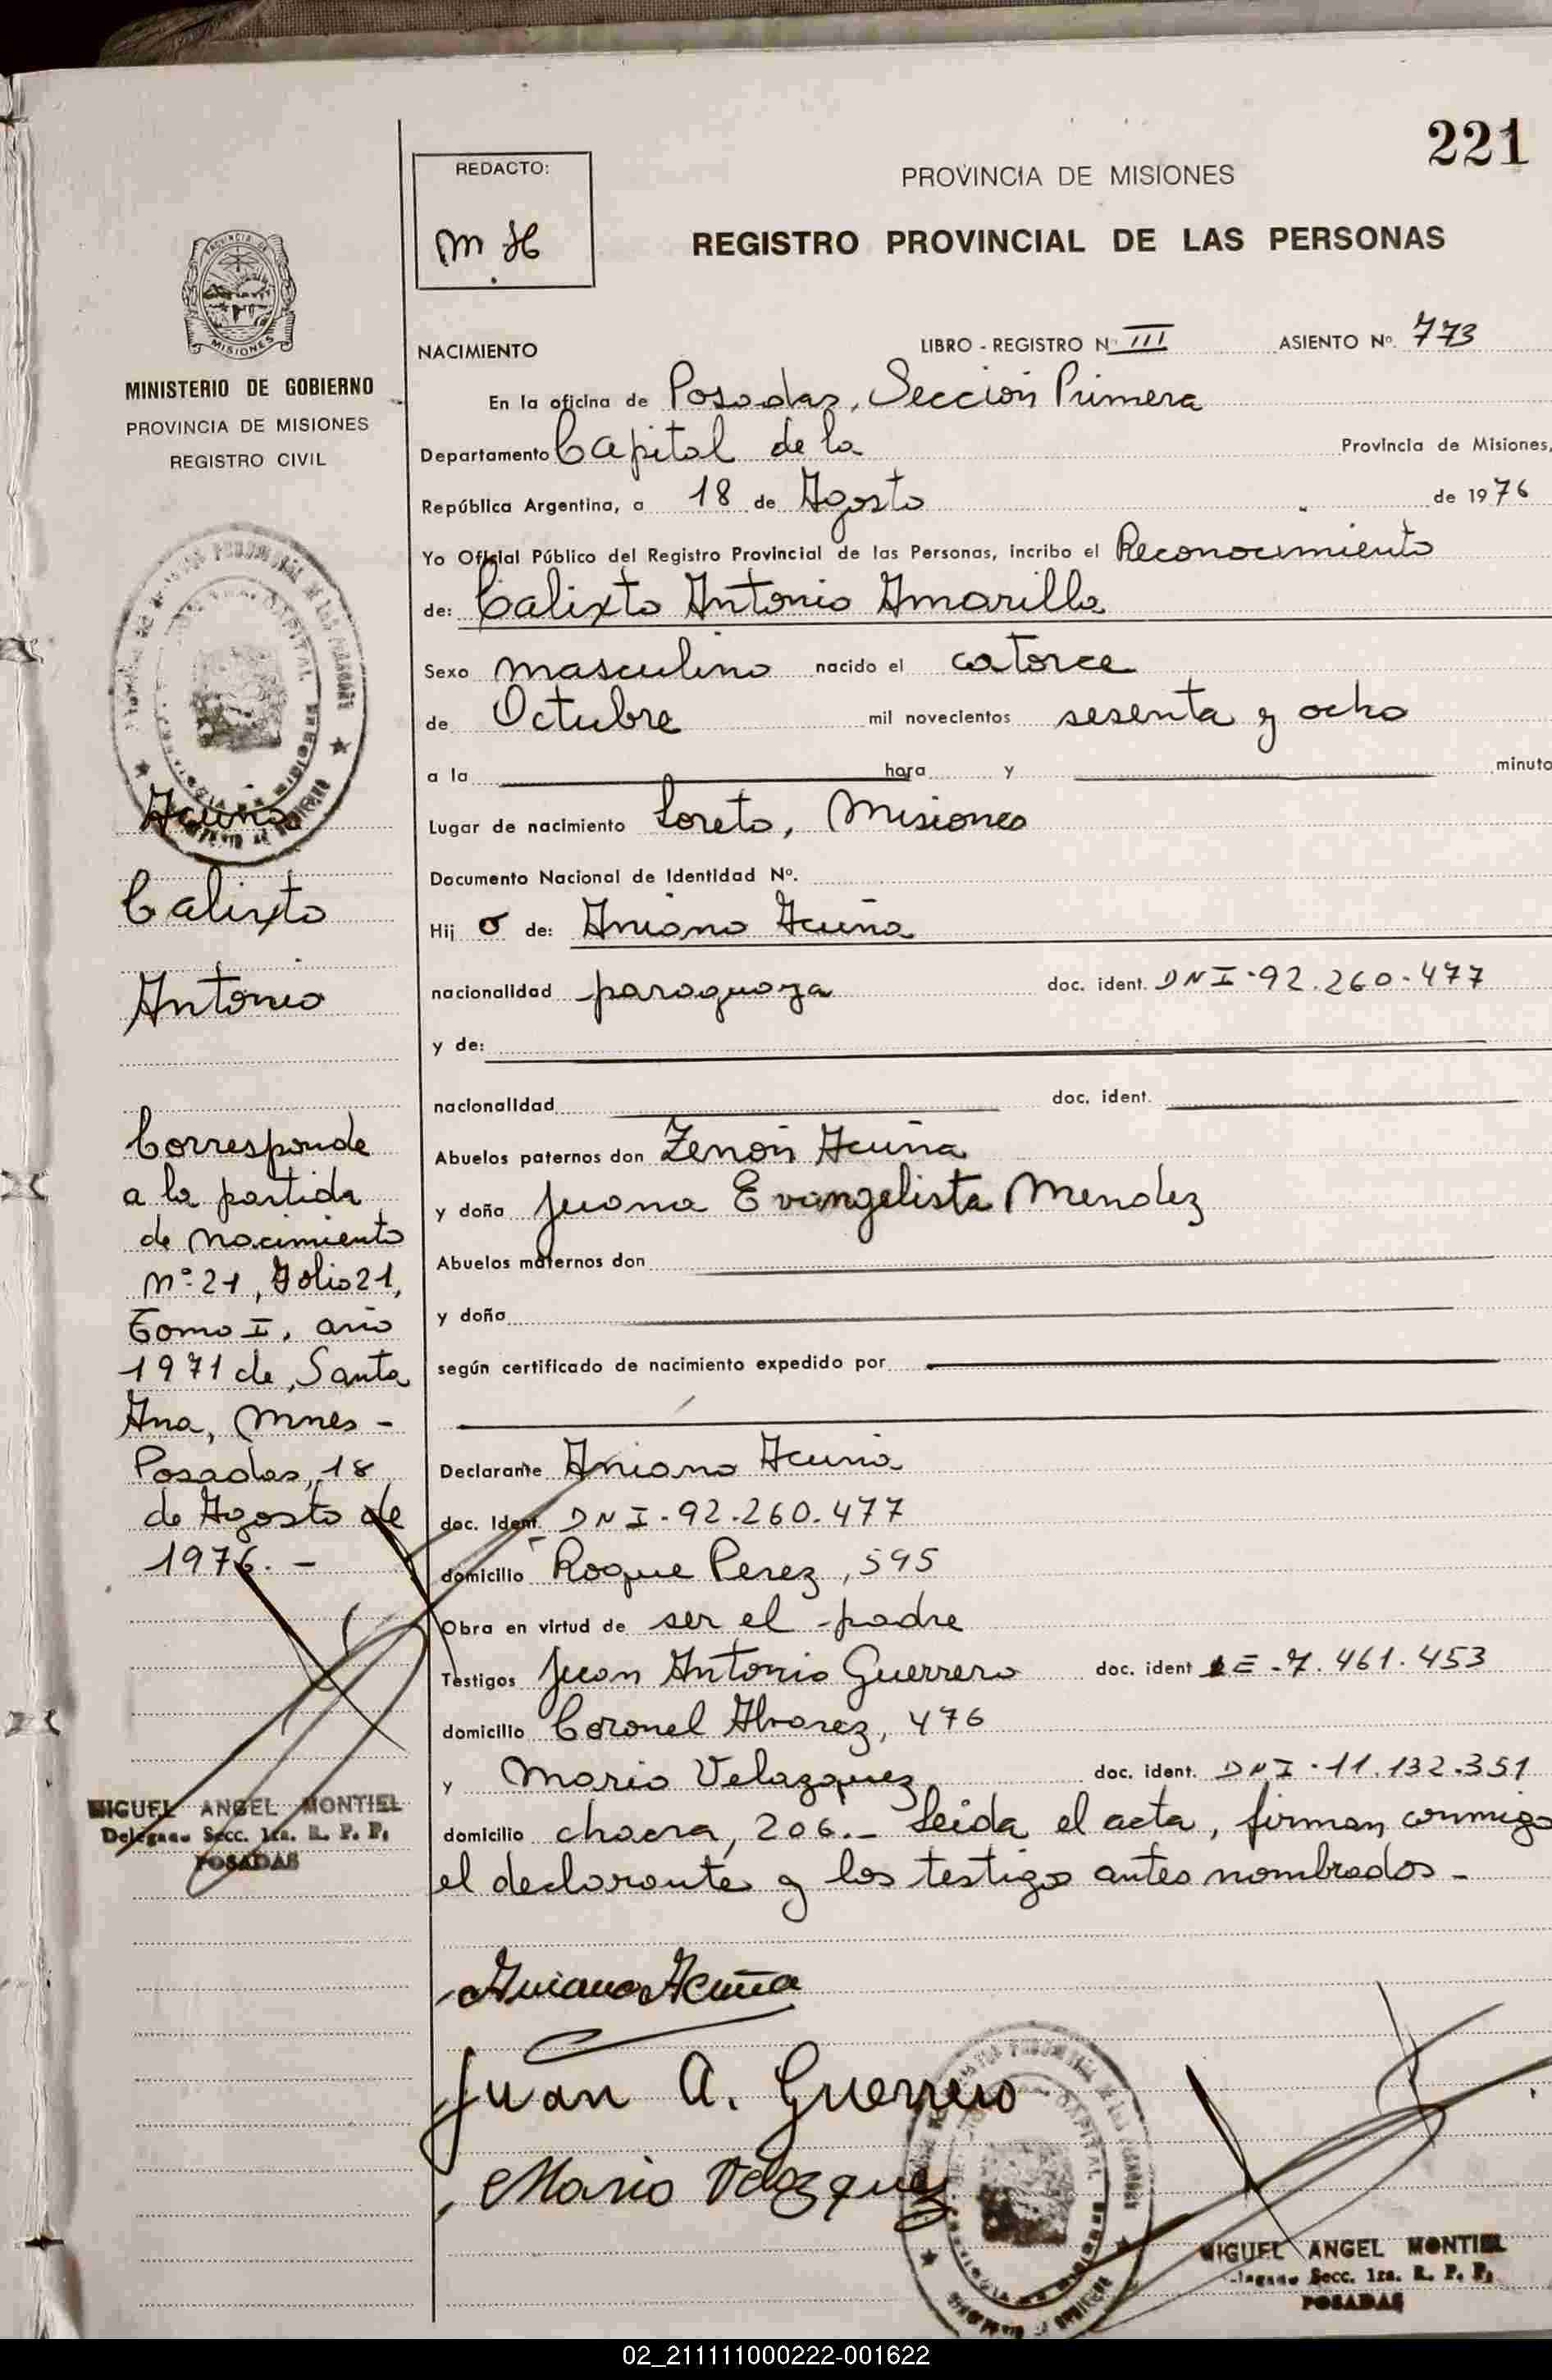 221
REDACTO:
M H
PROVINCIA DE MISIONES
REGISTRO PROVINCIAL DE LAS PERSONAS
MISIONES
MINISTERIO DE GOBIERNO
PROVINCIA DE MISIONES
REGISTRO CIVIL
NACIMIENTO
LIBRO - REGISTRO N III ASIENTO Nº. 773
En la oficina de Posadas, Sección Primera
Departamento Capital de la Provincia de Misiones,
República Argentina, a 18 de Agosto de 1976
Yo Oficial Público del Registro Provincial de las Personas, incribo el Reconocimiento
de: Calixto Antonio Amarilla
Sexo masculino nacido el catorce
de Octubre mil novecientos sesenta y ocho
a la hora y minuto
Lugar de nacimiento Loreto, Misiones
Documento Nacional de Identidad Nº.
Hij o de: Aniano Acuña
nacionalidad paraguaya doc. ident. DNI-92.260-477
y de:
nacionalidad doc. ident.
Abuelos paternos don Zenón Acuña
y doña Juana Evangelista Mendez
Abuelos maternos don
y doña
según certificado de nacimiento expedido por
Declarante Aniano Acuña
doc. Ident. DNI-92.260.477
domicilio Roque Perez, 595
Obra en virtud de ser el padre
Testigos Juan Antonio Guerrero doc. ident LE-7.461.453
domicilio Coronel Alvarez, 476
y Mario Velazquez doc. ident. DNI-11.132.351
domicilio chacra, 206.- Leida el acta, firman conmigo
el declarante y los testigo antes nombrados-
Acuña
Calixto
Antonio
Corresponde
a la partida
de nacimiento
nº 21, Folio 21,
Tomo I, año
1971 de, Santa
Ana, Mnes-
Posadas, 18
de Agosto de
1976.-
MIGUEL ANGEL MONTIEL
Delegado Secc. 1ra. R. P. P.
POSADAS
Aniano Acuña
Juan A. Guerrero
Mario Velazquez
MIGUEL ANGEL MONTIEL
Delegado Secc. 1ra. R. P. P.
POSADAS
02_211111000222-001622